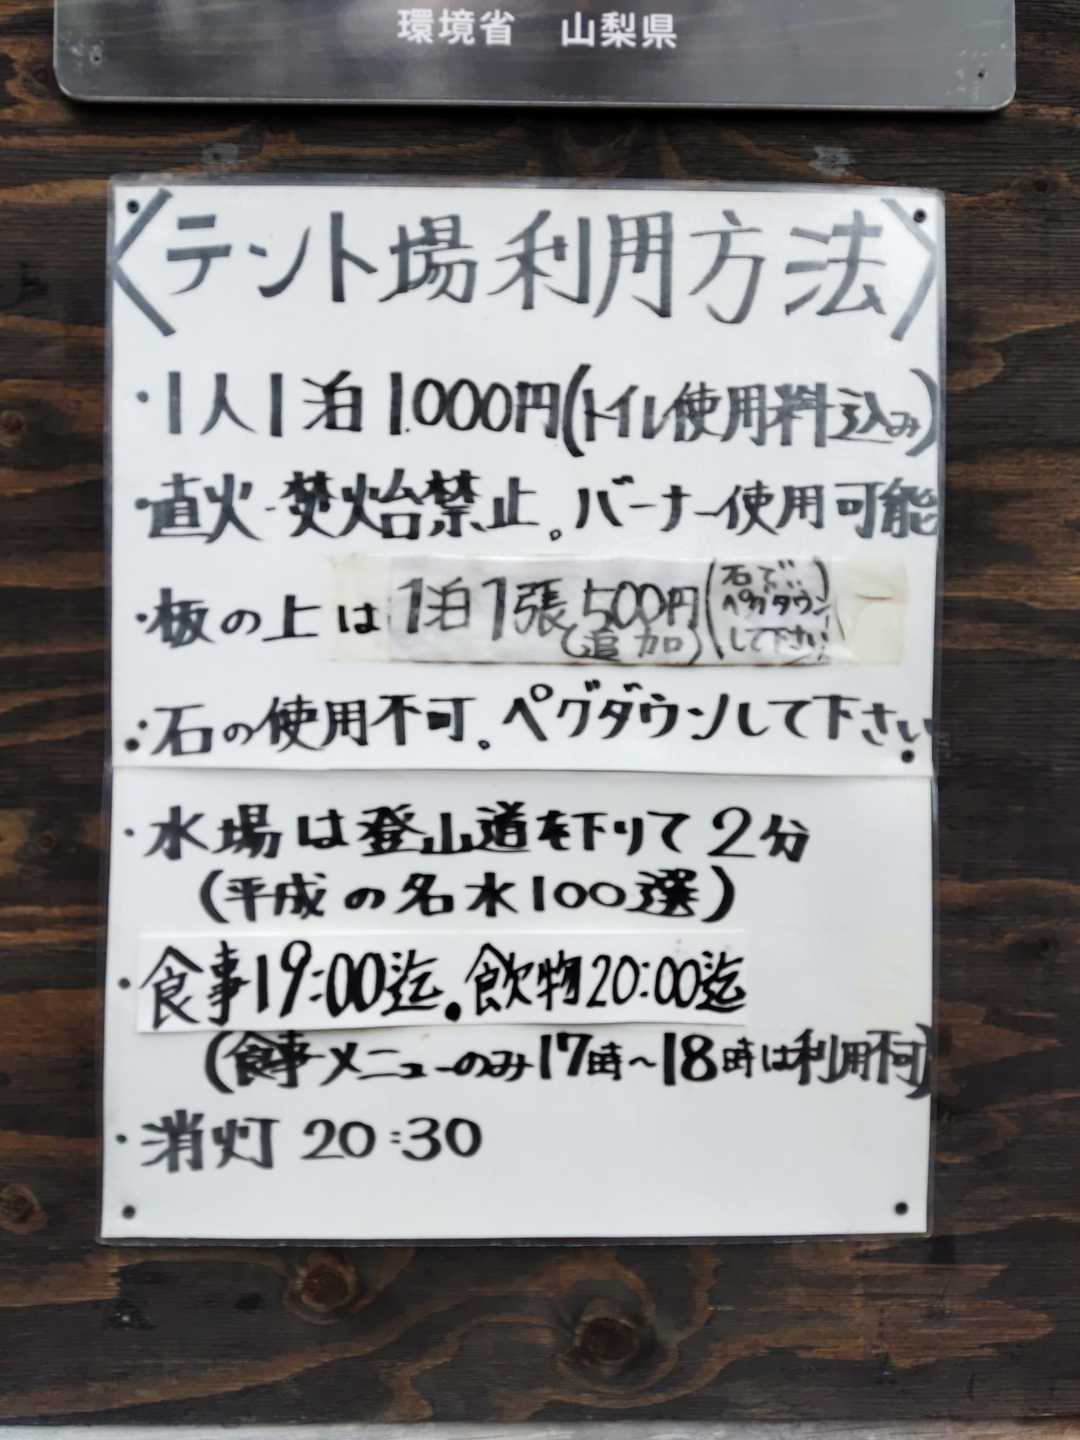 環境省　山梨県
〈テント場利用方法〉
・1人1泊1.000円(トイレ使用料込み)
・直火・焚火台禁止。バーナー使用可能
・板の上は1泊1張500円(追加)(石でペグダウンして下さい)
・石の使用不可。ペグダウンして下さい
・水場は登山道を下りて2分
(平成の名水100選)
・食事19:00迄.飲物20:00迄
(食事メニューのみ17時〜18時は利用不可)
・消灯 20:30